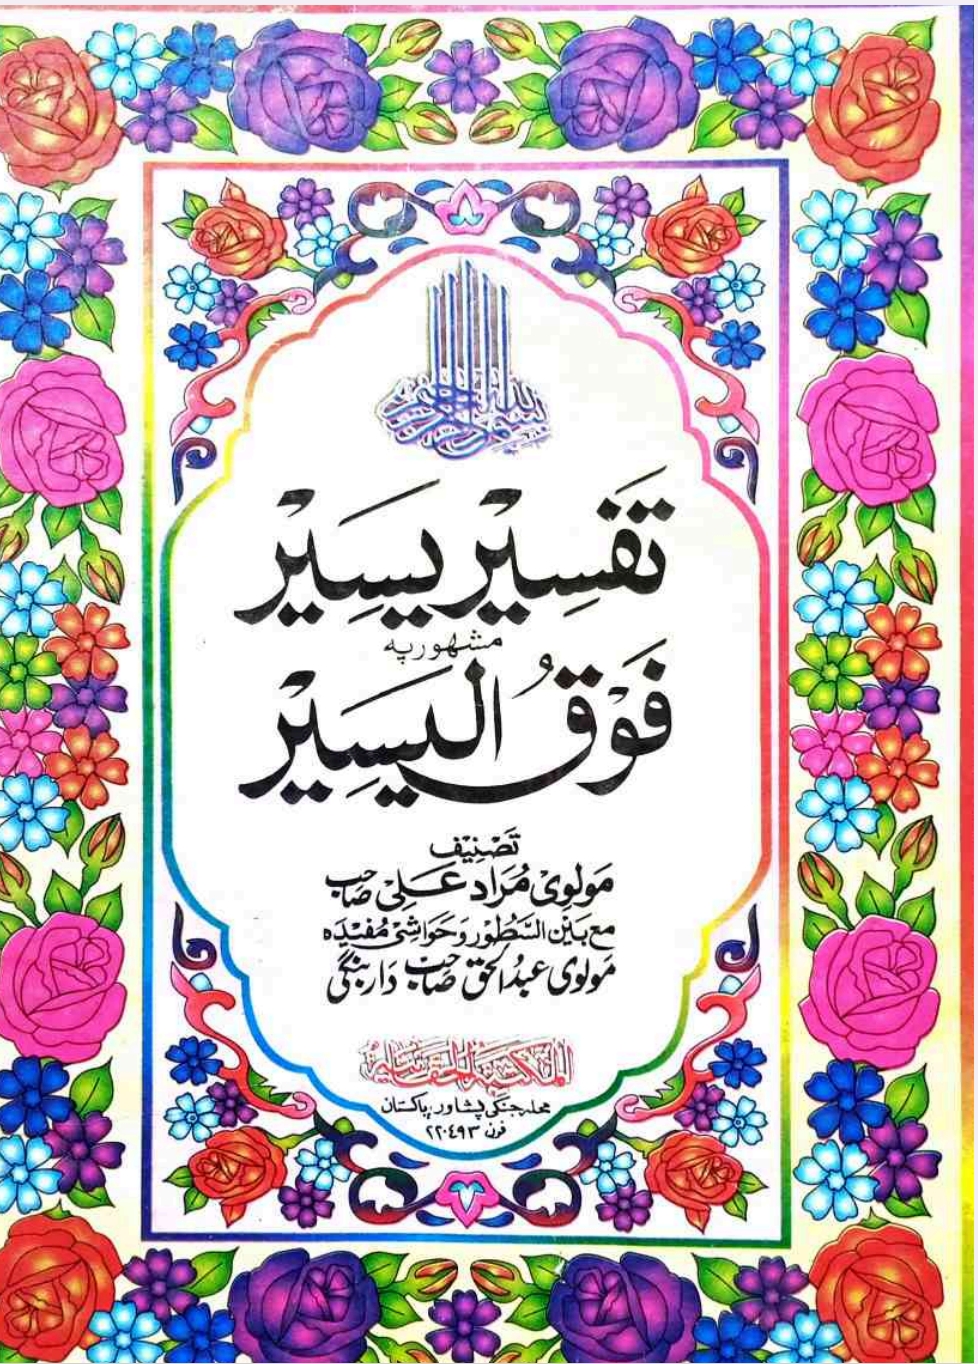 بسم الله الرحمن الرحيم
تَفسِیر یسِیر
مشهور په
فَوْقُ الیسِیر
تَصْنِیف
مَولوِیْ مُرَاد عَلِیْ صَاحِب
مع بَیْنَ السَّطُوْر وَحَوَاشِیْ مُفِیْدَه
مَولوی عَبدُالحَق صَاحِبْ دَاربنگی
محله جنگی پشاور، پاکستان
فون ۲۲۰۴۹۳